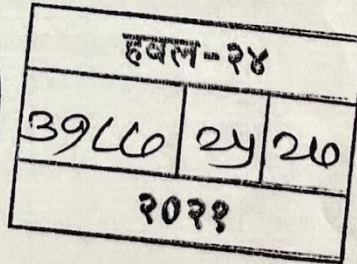 हवल-२४
३१८८७ २५ २७
२०२१